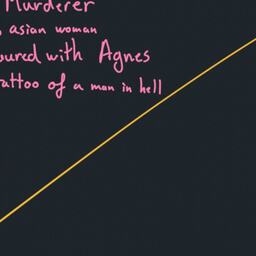 Murderer
asian woman
oured with Agnes
attoo of a man in hell